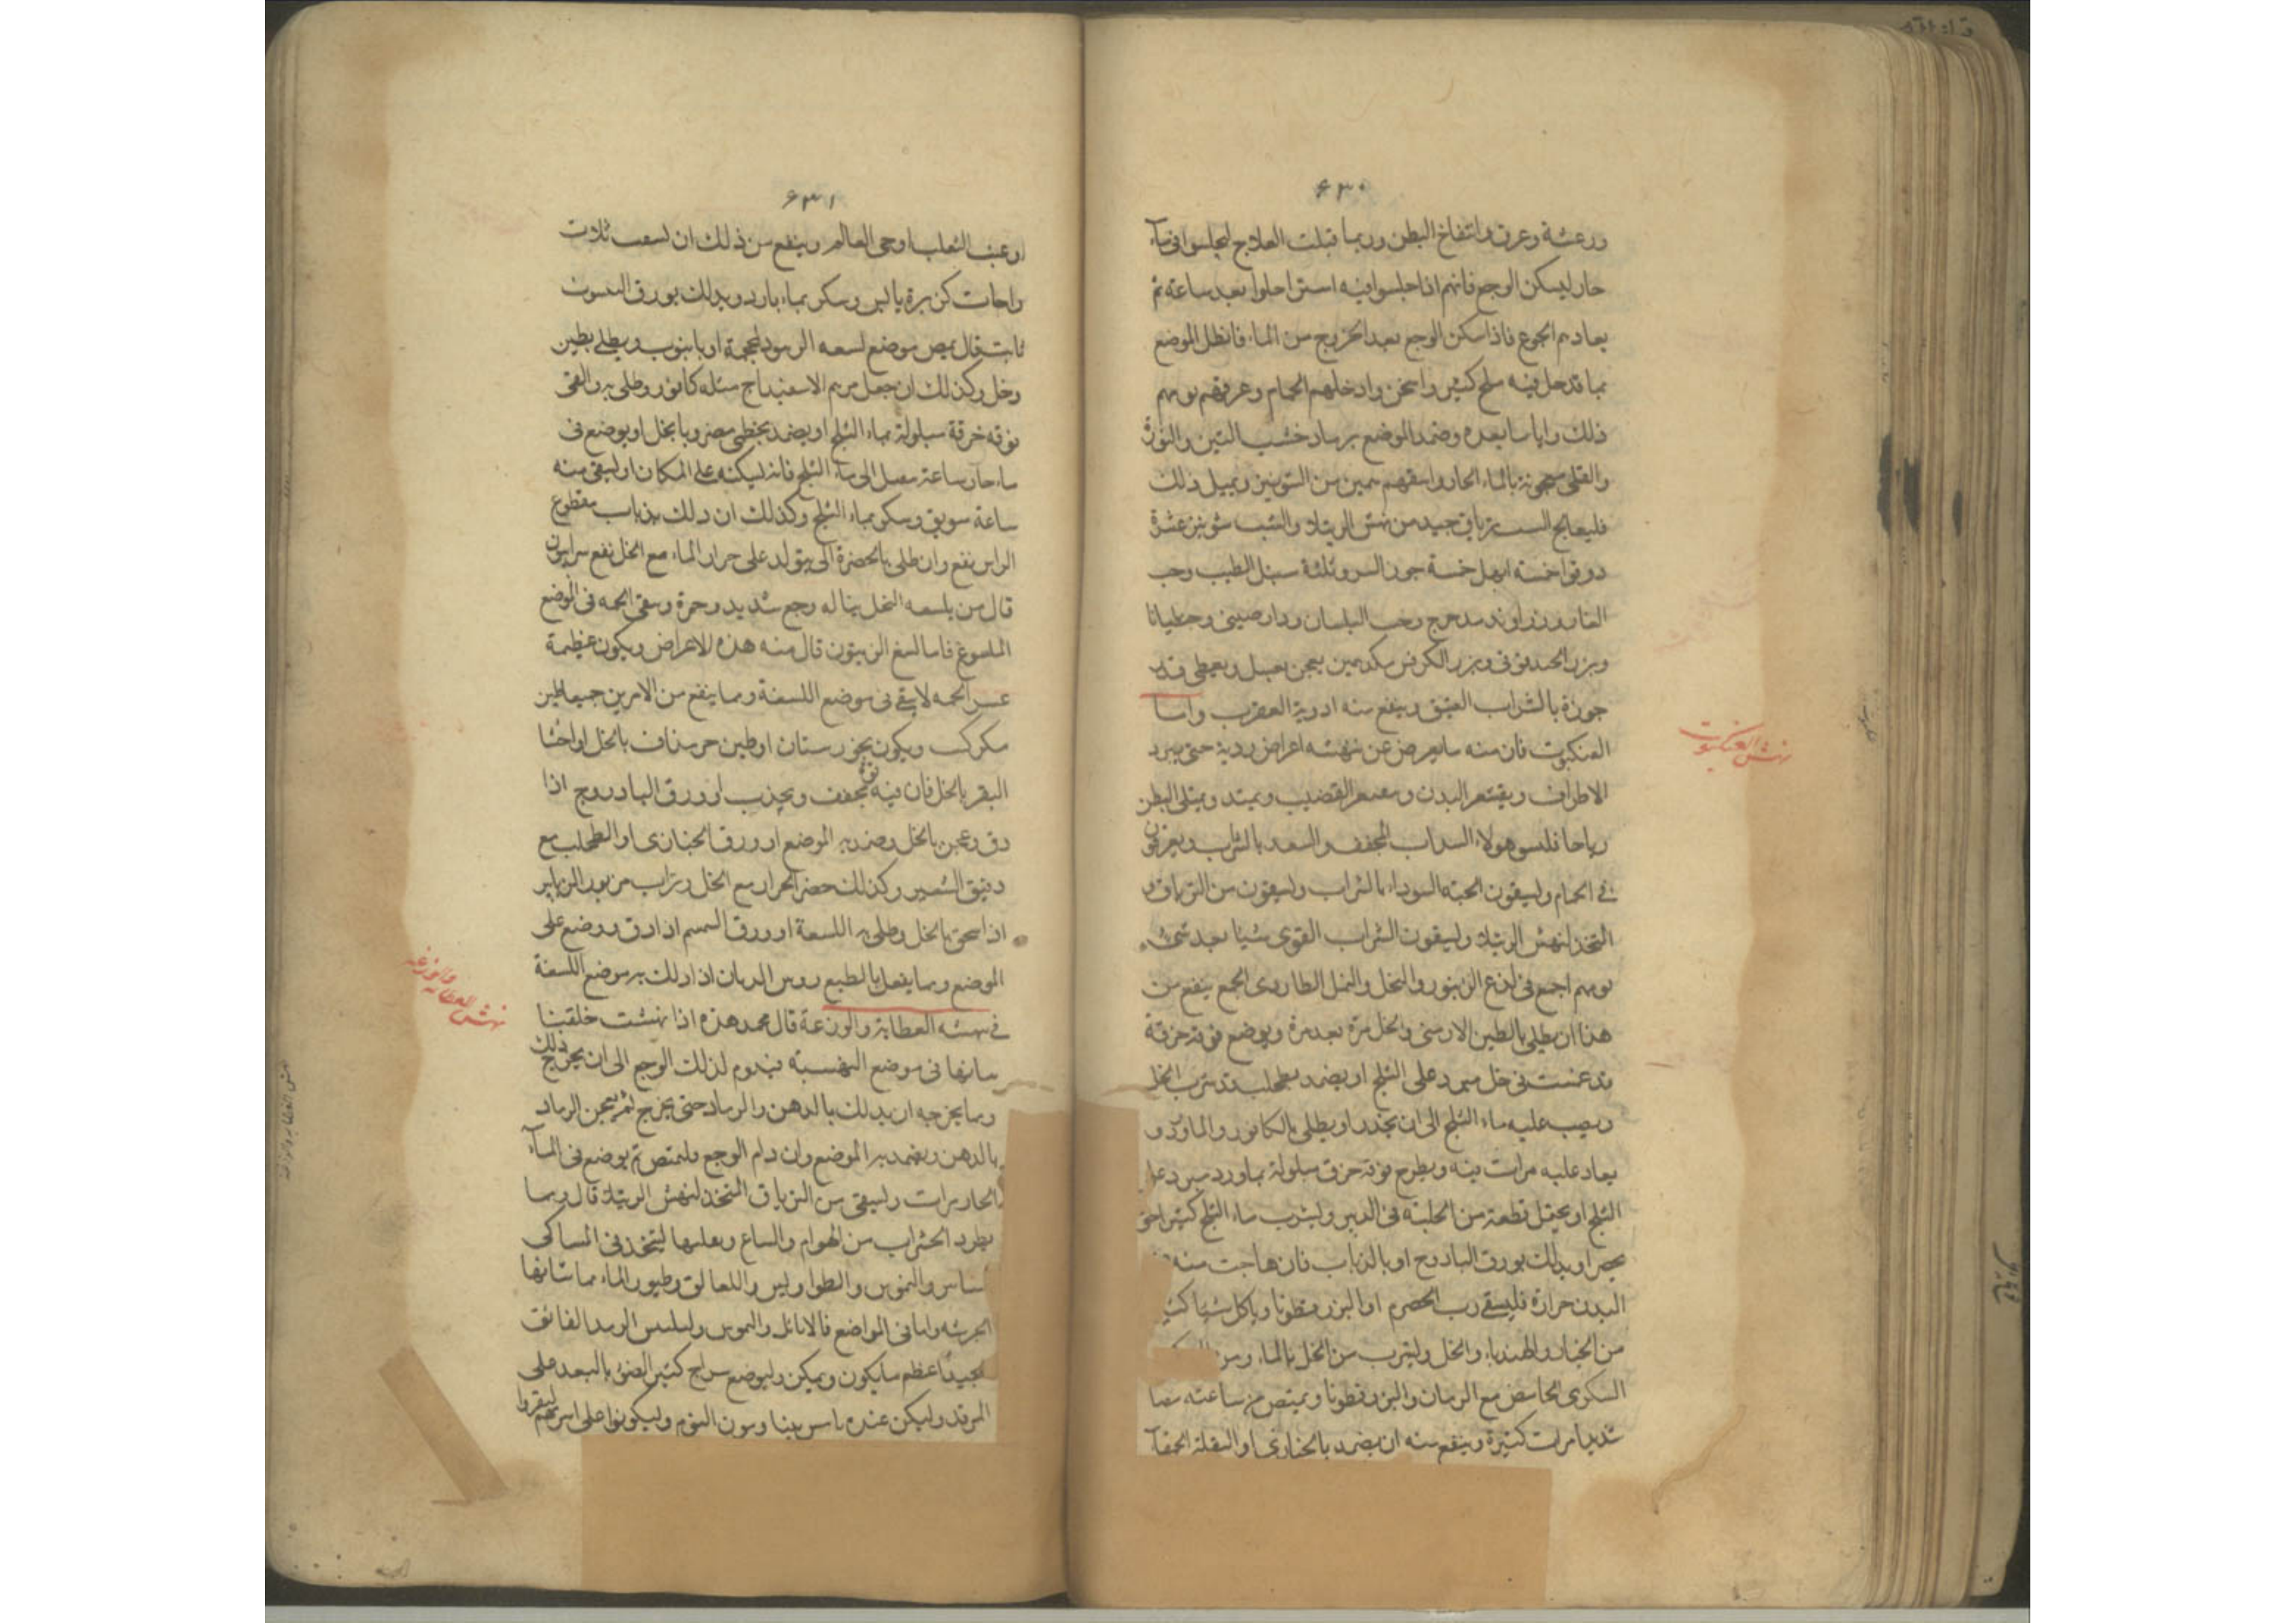 ٦٣٠
ورعشة وعرق وانتفاخ البطن وربما قبلت العلاج ليجلسوا في ماء
حار ليسكن الوجع فانهم اذا جلسوا فيه استراحوا بعد ساعة ثم
يعاد بهم الجوع فاذا سكن الوجع بعد الخروج من الماء فانطل الموضع
بما قد حل فيه ملح كثير واسخن وادخلهم الحمام وعرقهم يومهم
ذلك واياما بعده وضمد الموضع برماد خشب التين والنورة
والقلى معجونة بالماء الحار واسقهم من الشونيز وبميل ذلك
فليعالج ترياق جيد من نهش الرتيلا والشبث شونيز عشرة
دوقوا خمسة ابهل خمسة جوز السرو ثلثة سنبل الطيب وحب
الغار وزراوند مدحرج وحب البلسان ودارصيني وجنطيانا
وبزر الحندقوقى وبزر الكرفس يعجن بعسل ويعطى قدر
جوزة بالشراب العتيق وينفع منه ادوية العقرب واما
نهش العنكبوت
العنكبوت فان منه ما يعرض عن نهشه اعراض ردية حتى يبرد
الاطراف ويقشعر البدن القضيب ويمتد ويمتلى البطن
رياحا هولاء السداب المجفف والسعد بالشراب ويعرقون
في الحمام ويسقون الحبة السوداء بالشراب ويسقون من الترياق و
المتخذ لنهش الرتيلا ويسقون الشراب القوى شيا بعد شيء
يومهم اجمع في لذع الزنبور والنحل والنمل الطيار وى الجمع ينفع من
هذا ان يطلى بالطين الارمنى والخل مرة بعد مرة ويوضع فوقه خرقة
قد غمست في خل مبرد على الثلج او يضمد بطحلب قد شرب الخل
ويصب عليه ماء الثلج الى ان يخدر او يطلى بالكافور والماورد و
يعاد عليه مرات فيه ويطرح فوقه خرق مبلولة بماورد مبرد على
الثلج او يحتمل قطعة من في الدبر ويشرب ماء الثلج كثيرا حتى
او يدلك بورق البادروج او بالذباب فان هاجت منه في
البدن حرارة فليسقى رب الحصرم او البزرقطونا وياكل شيا كثيرا
من الخيار والهندباء والخل ويشرب من الخل بالماء ومن
السكرى الحامض مع الرمان والبزرقطونا ويمتص من ساعته مصا
شديدا مرات كثيرة وينفع منه ان يضمد بالخبازى او البقلة الحمقاء
٦٣١
او عنب الثعلب او حى العالم وينفع من ذلك ان ثلاث
راحات كزبرة يابس وسكر بماء بارد ويدلك بورق
ثابت قال يمص موضع لسعة الزنبور بالمحجمة او بانبوب ويطلى بطين
وخل وكذلك ان جعل مرهم الاسفيداج مثله كافور وطلى به والقى
فوقه خرقة مبلولة بماء الثلج او يضمد بخطمى مضروبا بخل او يوضع في
ماء حار ساعة الى ماء الثلج فانه يسكنه على المكان او يسقى منه
ساعة سويق وسكر بماء الثلج وكذلك ان دلك بذباب مقطوع
الراس نفع وان طلى بالخضرة التى يتولد على جرار الماء مع الخل نفع سرابيون
قال من يلسعه النحل يناله وجع شديد وحمرة ويبقى الحمة في الموضع
الملسوع فاما لسع الزنبور قال منه هذه الاعراض ويكون عظيمة
غير الحمة لا يبقى في موضع اللسعة ومما ينفع من الامرين جميعا طين
ويكون بخور او طين حر مذاف بالخل او اخثا
البقر بالخل فان فيه قوة تجفف ويجذب او ورق البادروج اذا
دق وعجن بالخل وضمد به الموضع او ورق الخبازى او الطحلب مع
دقيق الشعير وكذلك خضر الجرار مع الخل وتراب
اذا سحق بالخل وطلى به اللسعة او ورق السمسم اذا دق ووضع على
الموضع ومما يفعل بالطبع روس الذبان اذا دلك به موضع اللسعة
نهش العظاية والوزغة
في نهشة العظاية والوزغة قال محمد هذه اذا نهشت خلفت
اسنانها في موضع النهشة فيدوم لذلك الوجع الى ان يخرج ذلك
ومما يخرجه ان يدلك بالدهن والرماد حتى يخرج ثم يعجن الرماد
بالدهن ويضمد به الموضع وان دام الوجع فليمتص ثم يوضع في الماء
الحار مرات وليسقى من الترياق المتخذ لنهش الرتيلا قال ومما
يطرد الحشرات من الهوام والسباع ويقتلها ليتخذ في المساكن
والطواويس واللقالق وطيور الماء مما شانها
في المواضع فالايائل
اعظم ما يكون ويمكن وليوضع سراج كثير الضوء بالبعد من
المرقد وليكن عنده ناس النوم وليكونوا على اسرتهم ليقروا